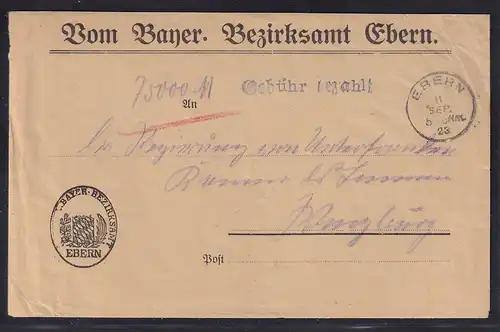 Vom Bayer. Bezirksamt Ebern.
75000 M
Gebühr bezahlt
EBERN
11
SEP.
5
NM.
23
An
Die Regierung von Unterfranken
Kammer des Innern
Würzburg
BAYER. BEZIRKSAMT
EBERN
Post